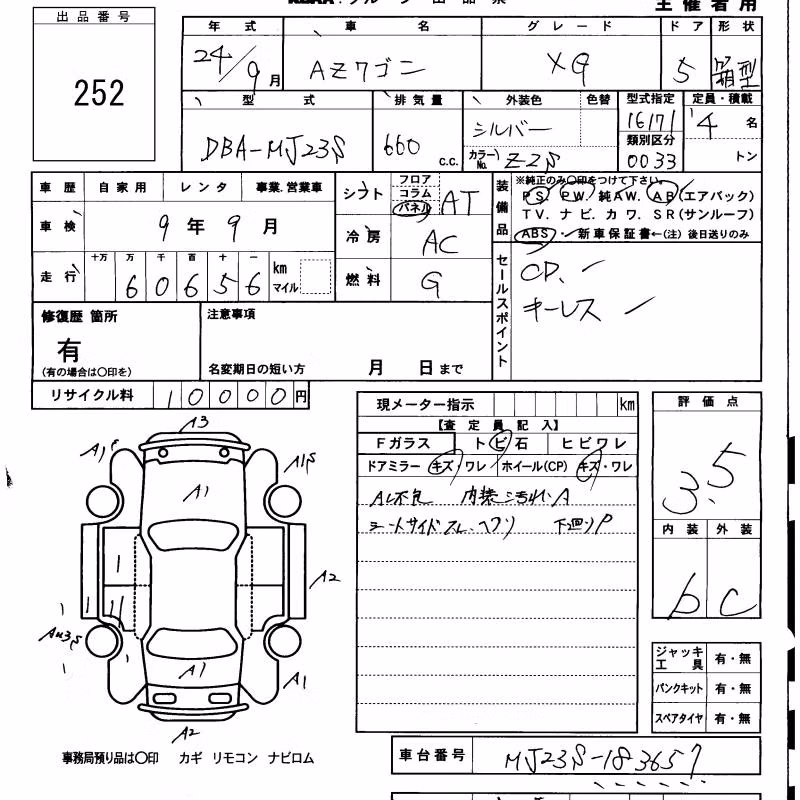 主催者用
出品番号
252
年式 車名 グレード ドア 形状
24/9月 AZワゴン XG 5 箱型
型式 排気量 外装色 色替 型式指定 定員・積載
DBA-MJ23S 660 c.c. シルバー 16171 4名
カラーNo. Z2S 類別区分 0033 トン
車歴 自家用 レンタ 事業.営業車
車検 9年9月
走行 十万 万 千 百 十 一 km マイル
60656
シフト フロア コラム パネル AT
冷房 AC
燃料 G
装備品
※純正のみ〇印をつけて下さい。
PS PW. 純AW. AB(エアバック)
TV. ナビ. カワ. SR(サンルーフ)
ABS・ 新車保証書←(注)後日送りのみ
セールスポイント
CD.
キーレス
修復歴 箇所
有
(有の場合は〇印を)
注意事項
名変期日の短い方 月 日まで
リサイクル料 10000円
現メーター指示 km
【査定員記入】
Fガラス トビ石 ヒビワレ
ドアミラー キズ・ワレ ホイール(CP) キズ・ワレ
内装ニ汚れ.A
シートサイドスレ.ヘタリ 下廻りP
評価点
3.5
内装 外装
b C
A3
A1
A1
A2
A1
A2
ジャッキ工具 有・無
パンクキット 有・無
スペアタイヤ 有・無
事務局預り品は〇印 カギ リモコン ナビロム
車台番号 MJ23S-183657